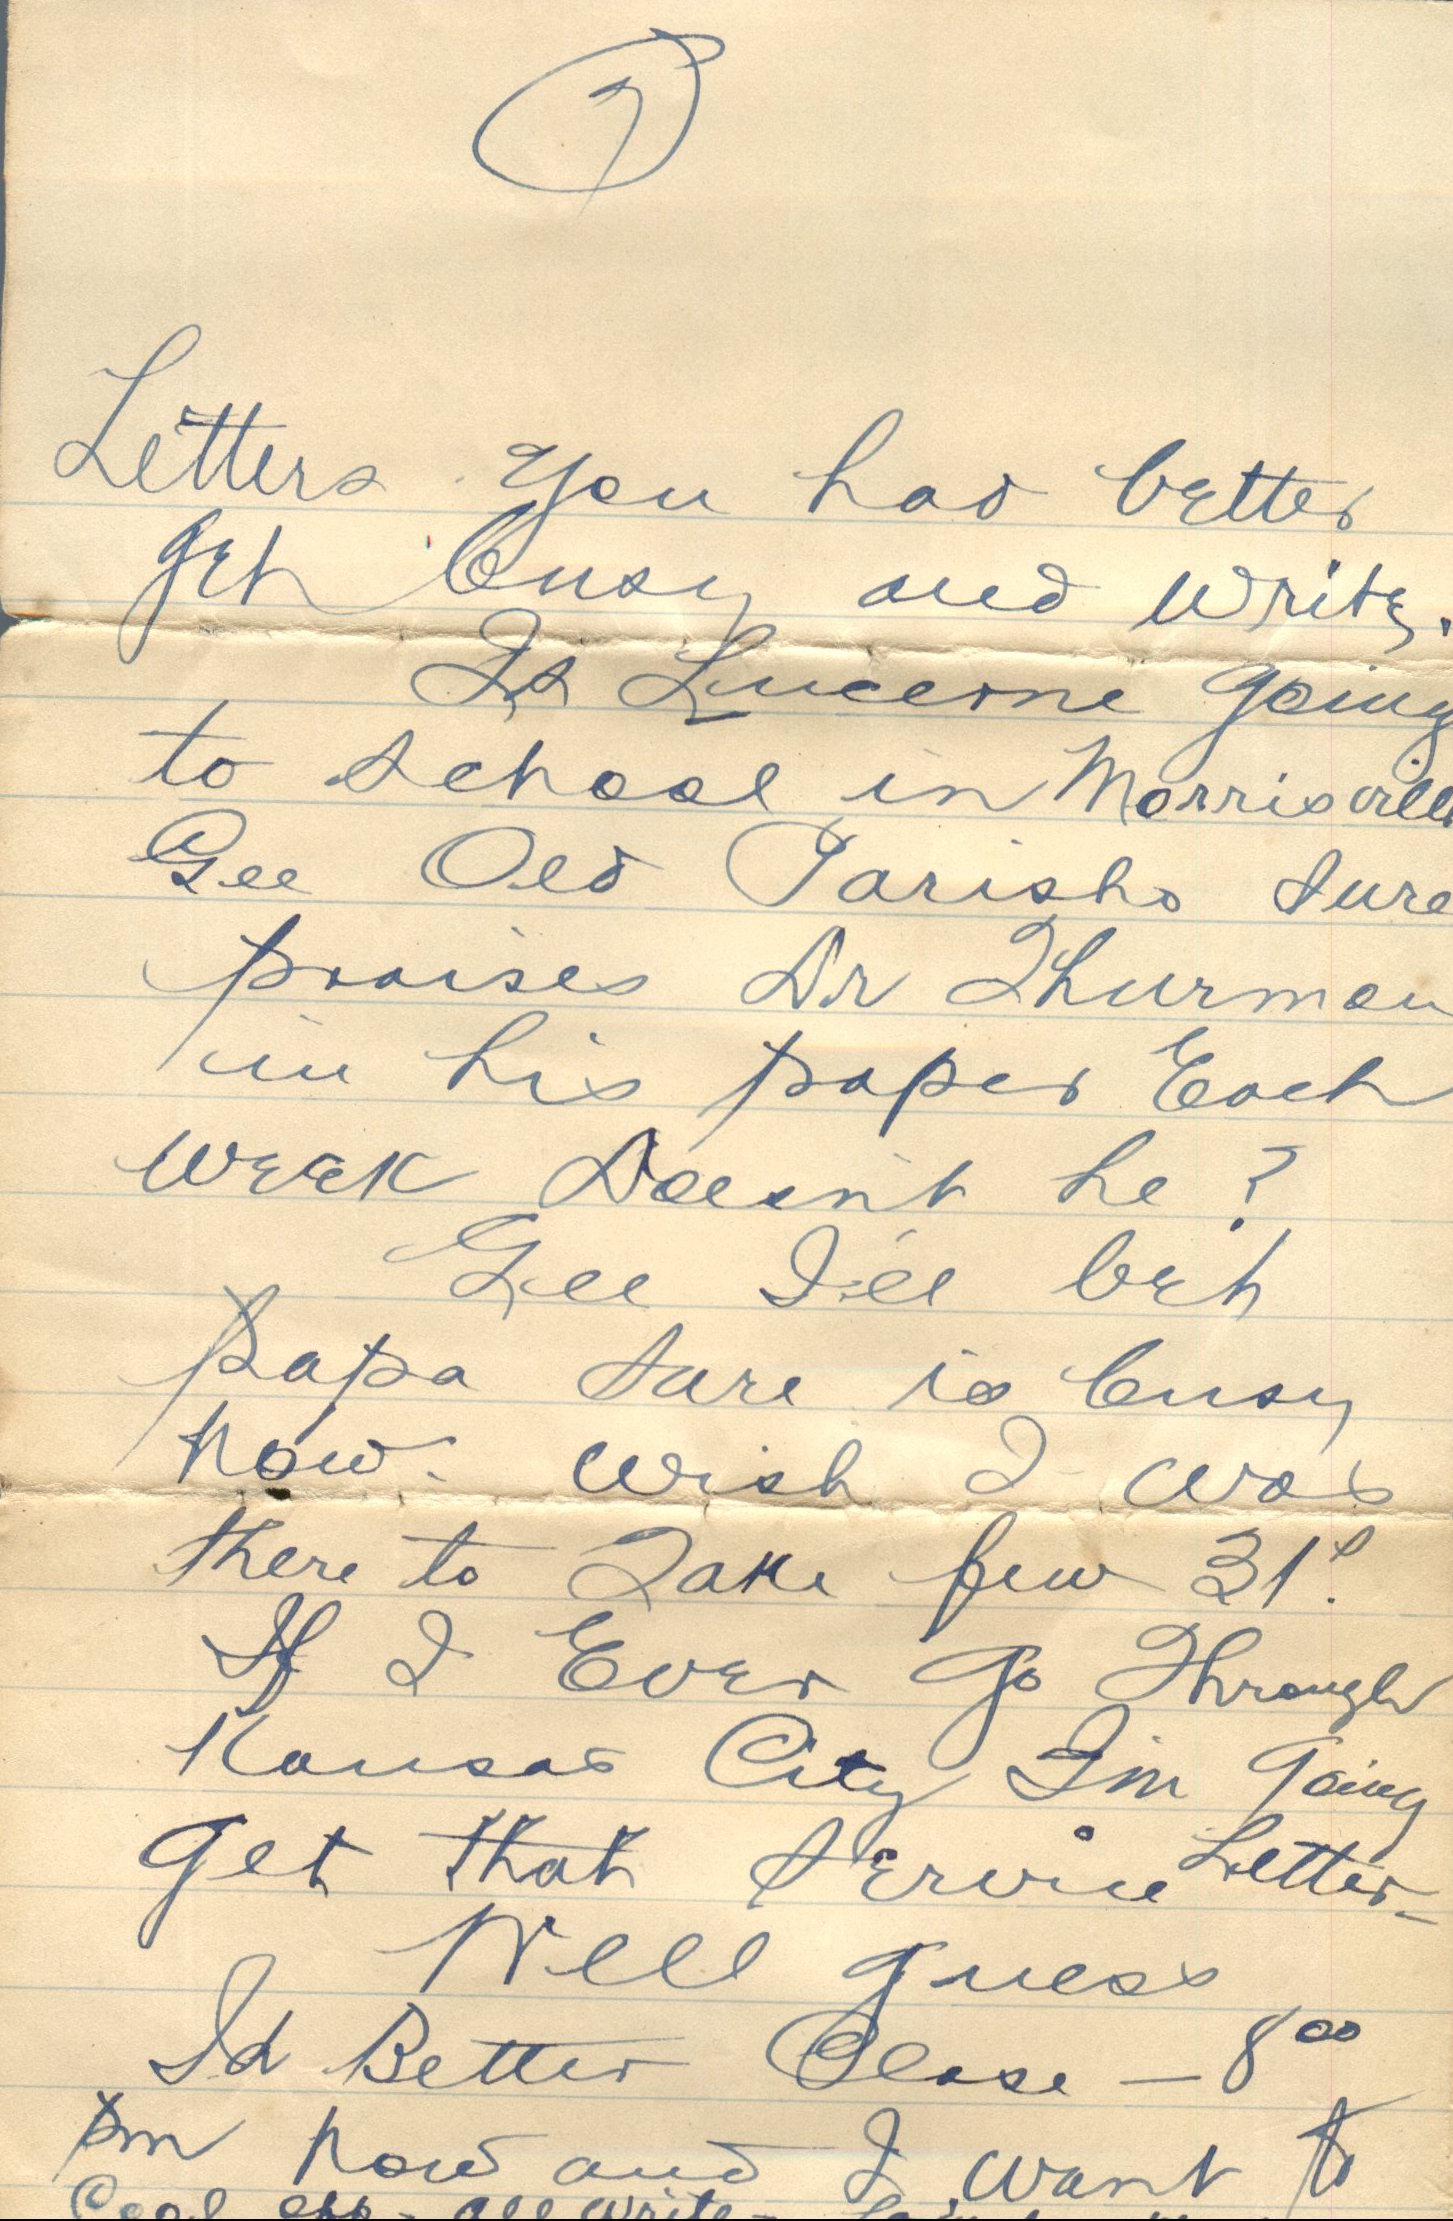 7
Letters you had better
get busy and write.
Is Lucerne going
to school in Morrisville
Gee Old Parisho sure
praises Dr Thurman
in his paper Each
week Doesn't he?
Gee I'll bet
papa sure is busy
now. wish I was
there to Take few 31s.
If I Ever go Through
Kansas City I'm going
get that service Letter-
Well guess
I'd Better Close - 8⁰⁰
pm now and I want to
Cool off - all write-